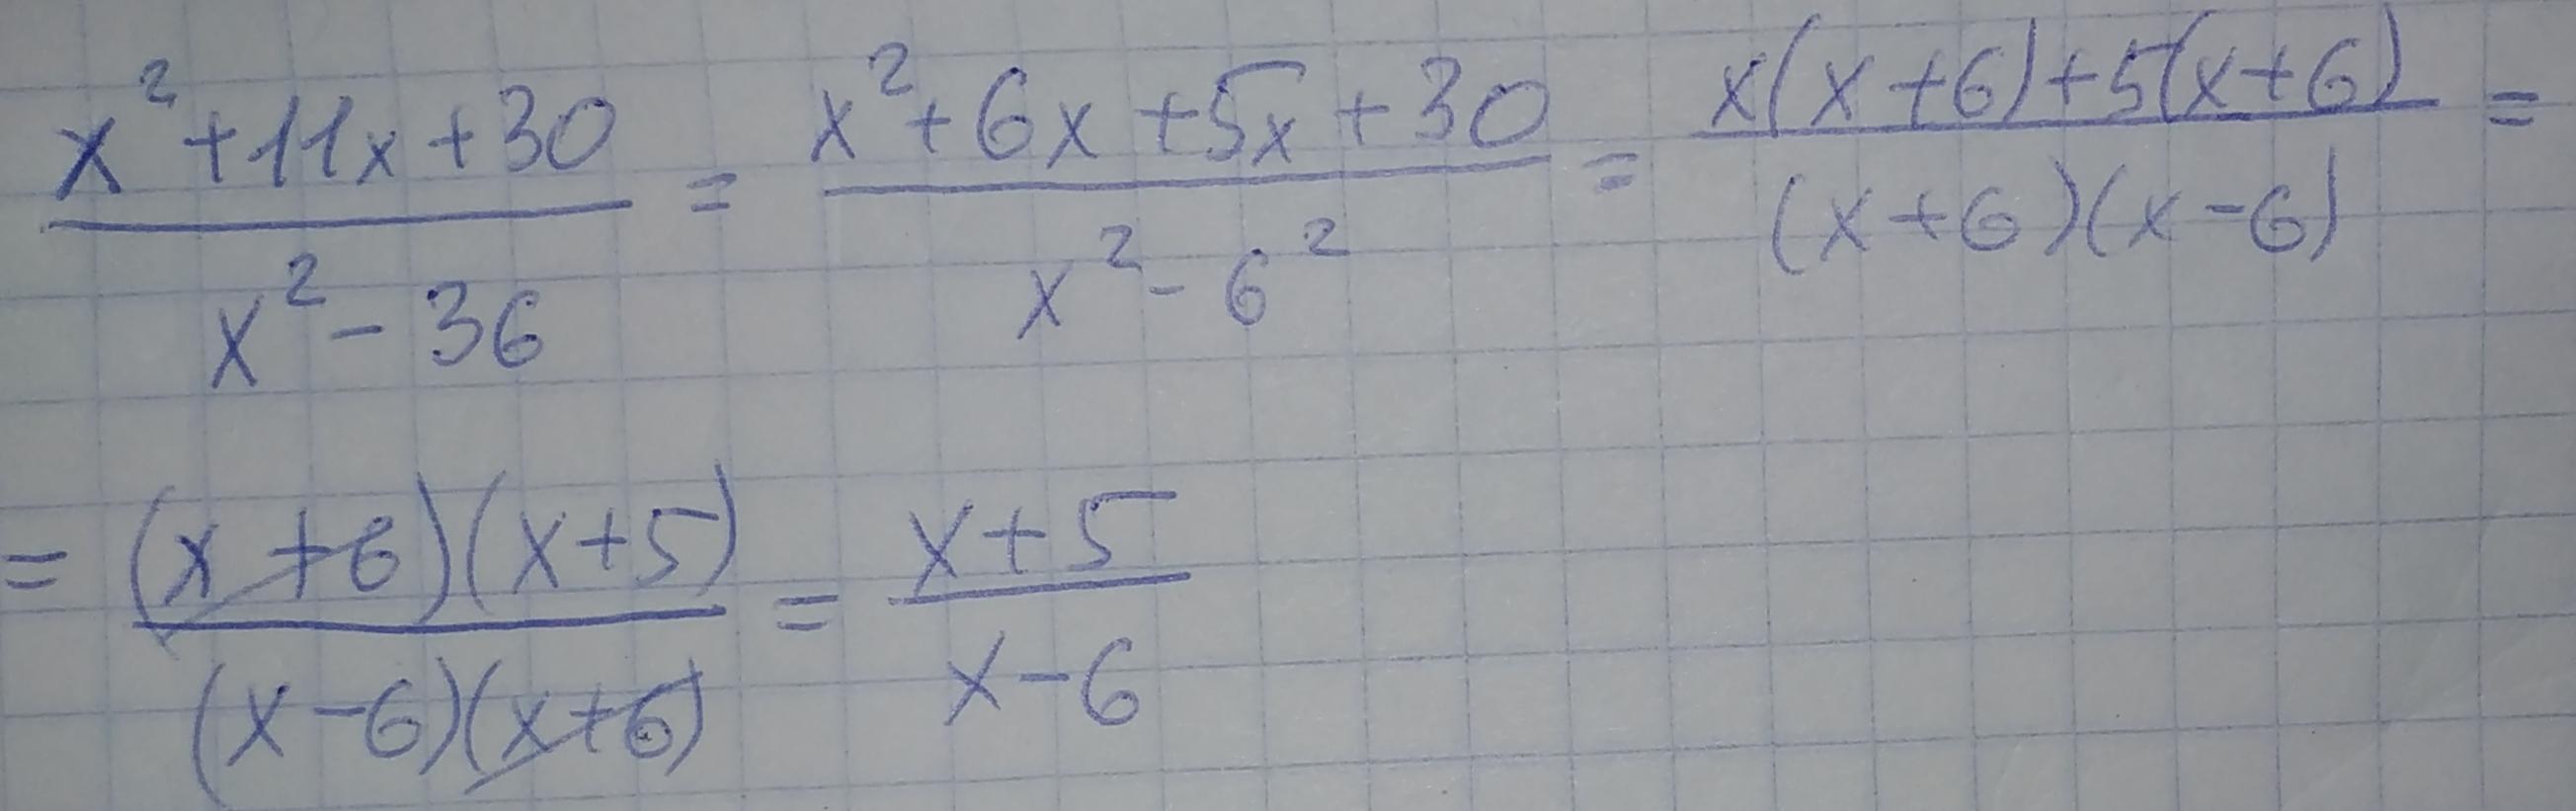 (x²+11x+30)/(x²-36) = (x²+6x+5x+30)/(x²-6²) = (x(x+6)+5(x+6))/((x+6)(x-6)) =
= ((x+6)(x+5))/((x-6)(x+6)) = (x+5)/(x-6)